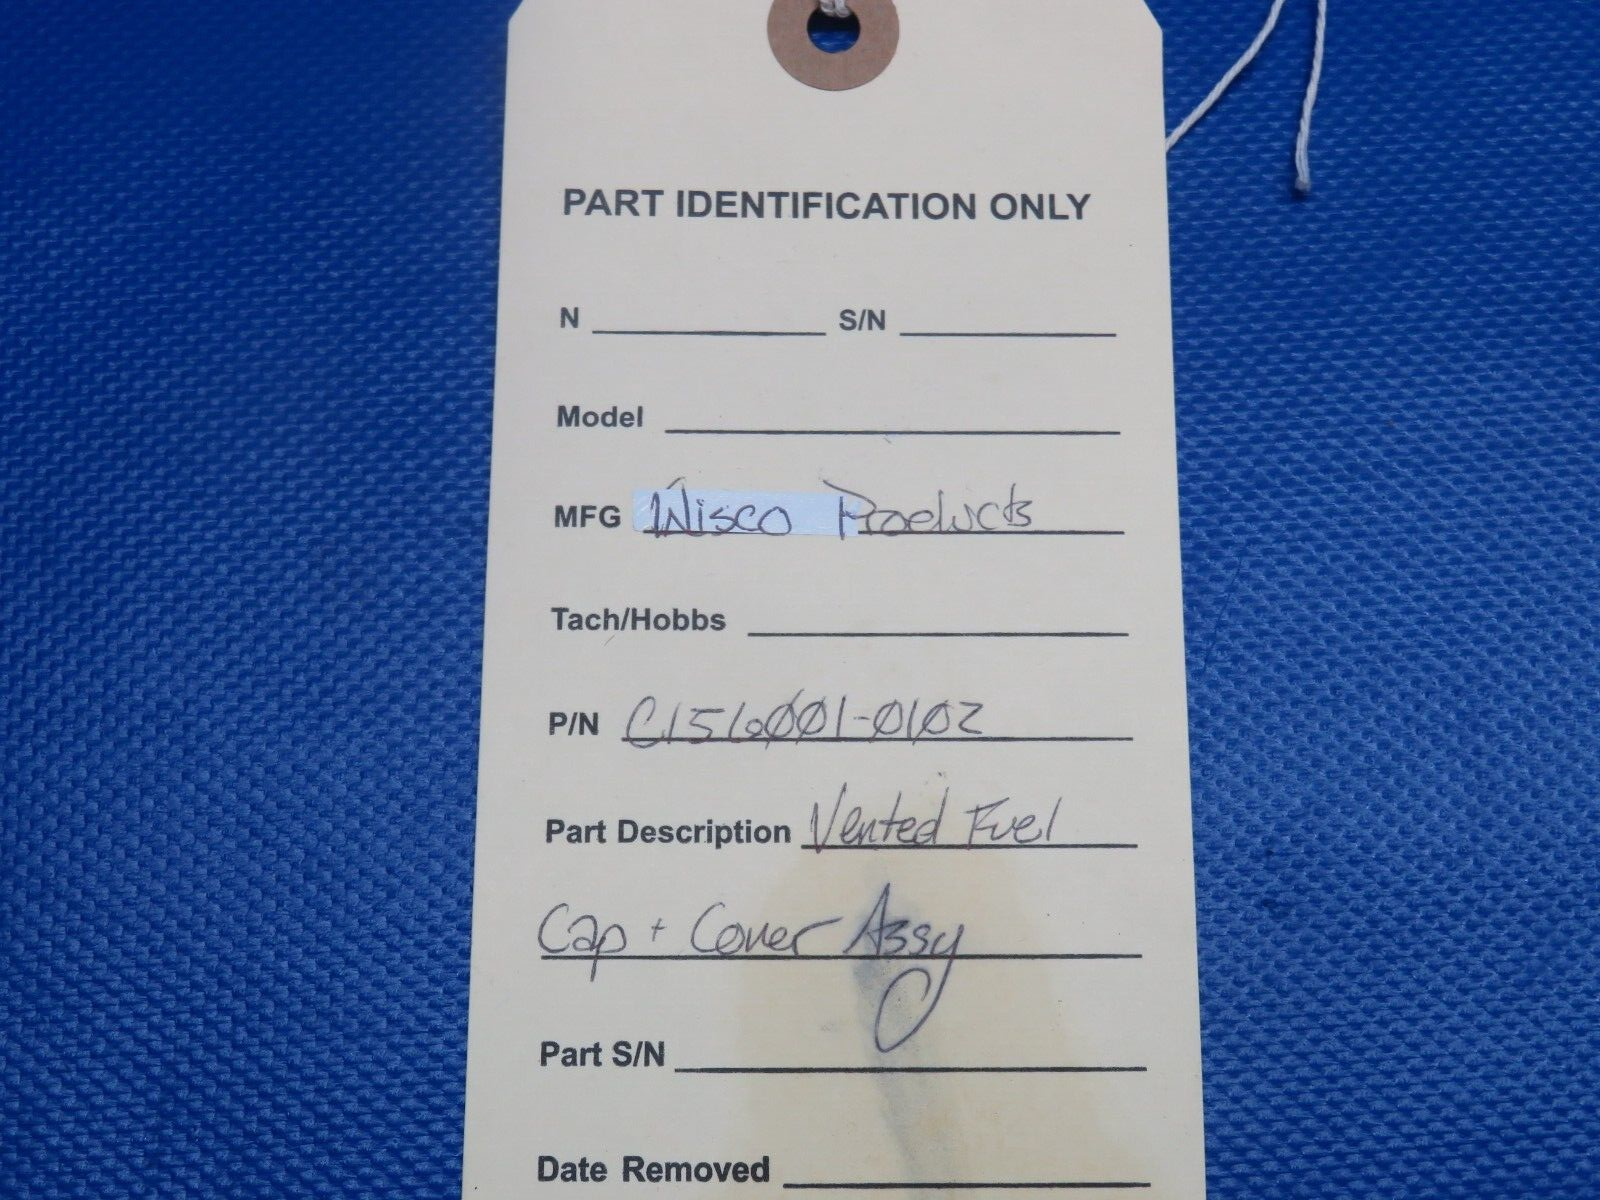 PART IDENTIFICATION ONLY
N S/N
Model
MFG Wisco Products
Tach/Hobbs
P/N C156001-0102
Part Description Vented Fuel
Cap + Cover Assy
Part S/N
Date Removed